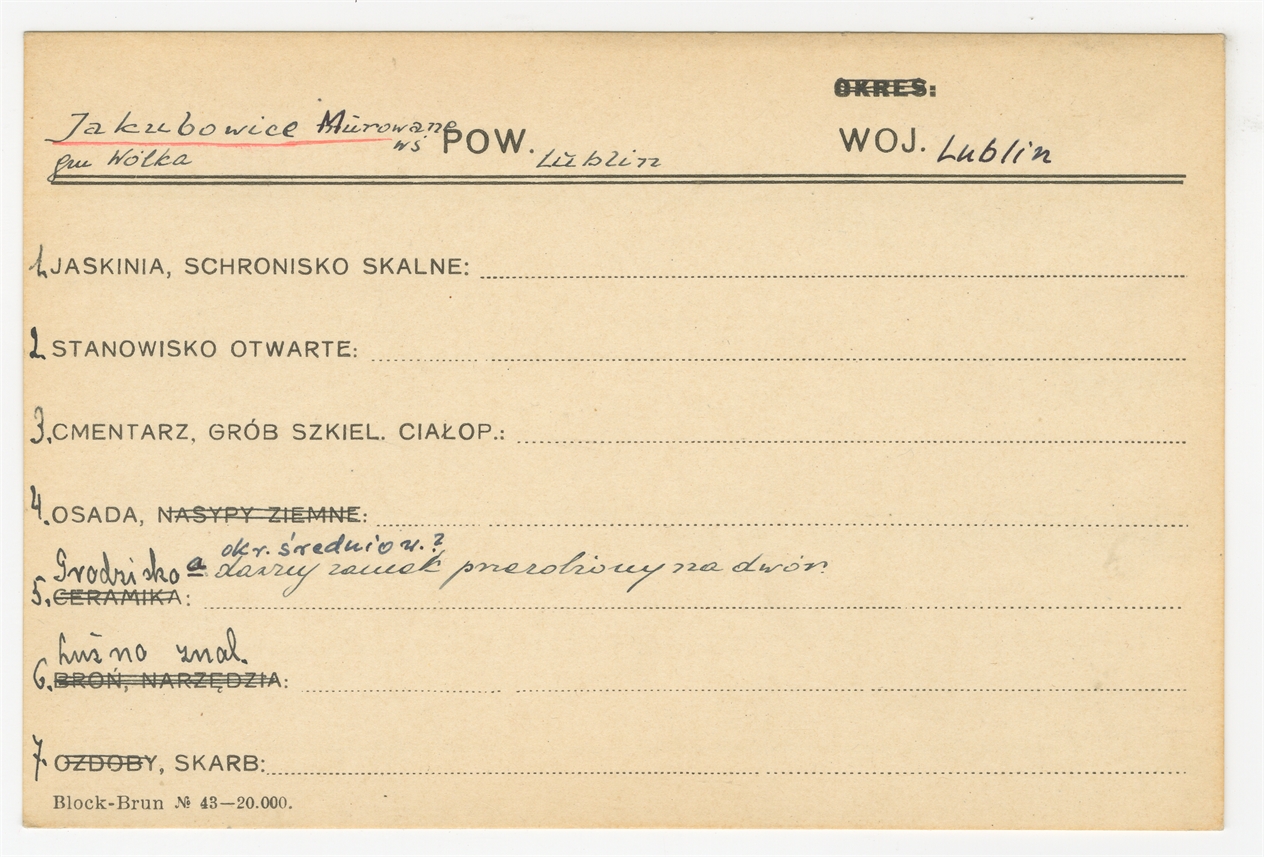 OKRES:
Jakubowice Murowane
wś POW. Lublin WOJ. Lublin
gm Wólka
1. JASKINIA, SCHRONISKO SKALNE:
2. STANOWISKO OTWARTE:
3. CMENTARZ, GRÓB SZKIEL. CIAŁOP.:
4. OSADA, NASYPY ZIEMNE:
okr. średniow.?
Grodzisko a dawny zamek przerobiony na dwór.
5. CERAMIKA:
Luźno znal.
6. BROŃ, NARZĘDZIA:
7. OZDOBY, SKARB:
Block-Brun № 43—20.000.